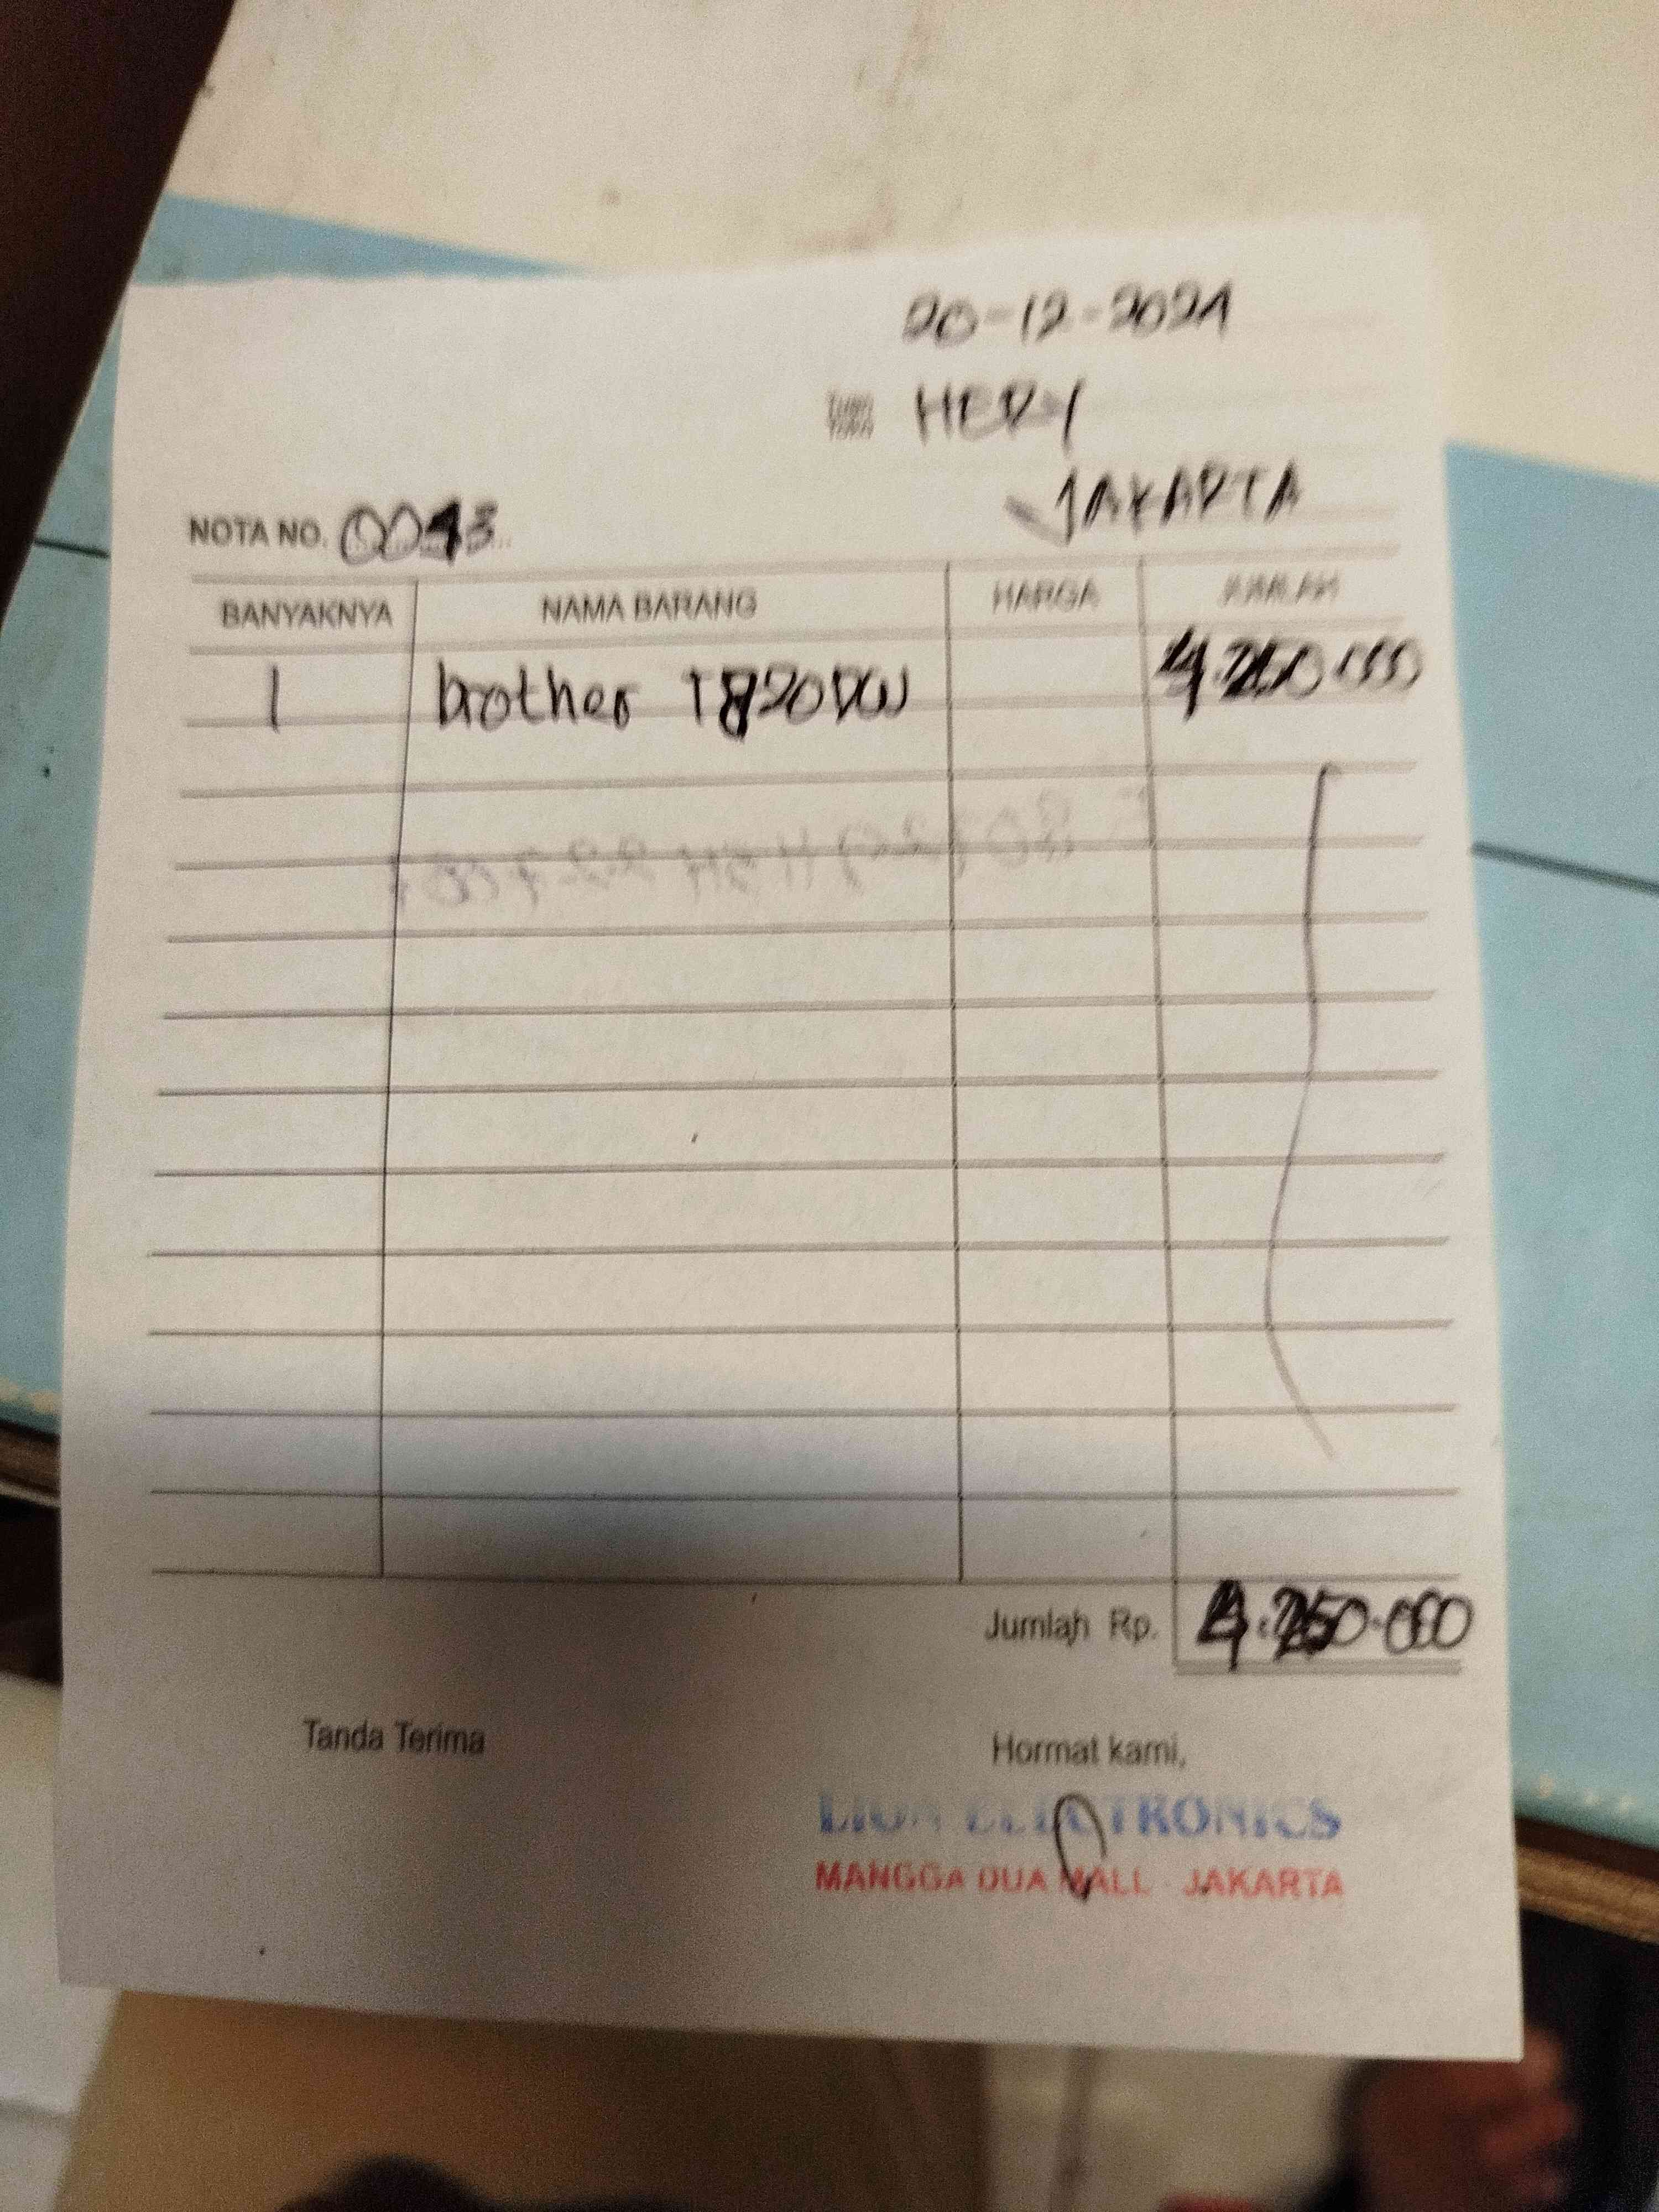 20-12-2024
TUAN
TOKO
HERY
JAKARTA
NOTA NO. 0043
BANYAKNYA NAMA BARANG HARGA JUMLAH
1 brother T820DW 4.250.000
Jumlah Rp. 4.250.000
Tanda Terima Hormat kami,
LION ELECTRONICS
MANGGA DUA MALL - JAKARTA